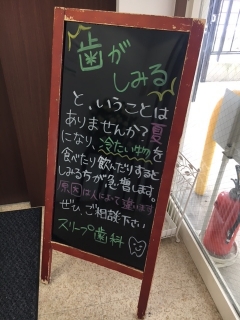 歯が
しみる
と、いうことは
ありませんか?夏
になり、冷たい物を
食べたり飲んだりすると
しみる方が急増します。
原因は人によって違います
ぜひ、ご相談下さい
スリープ歯科